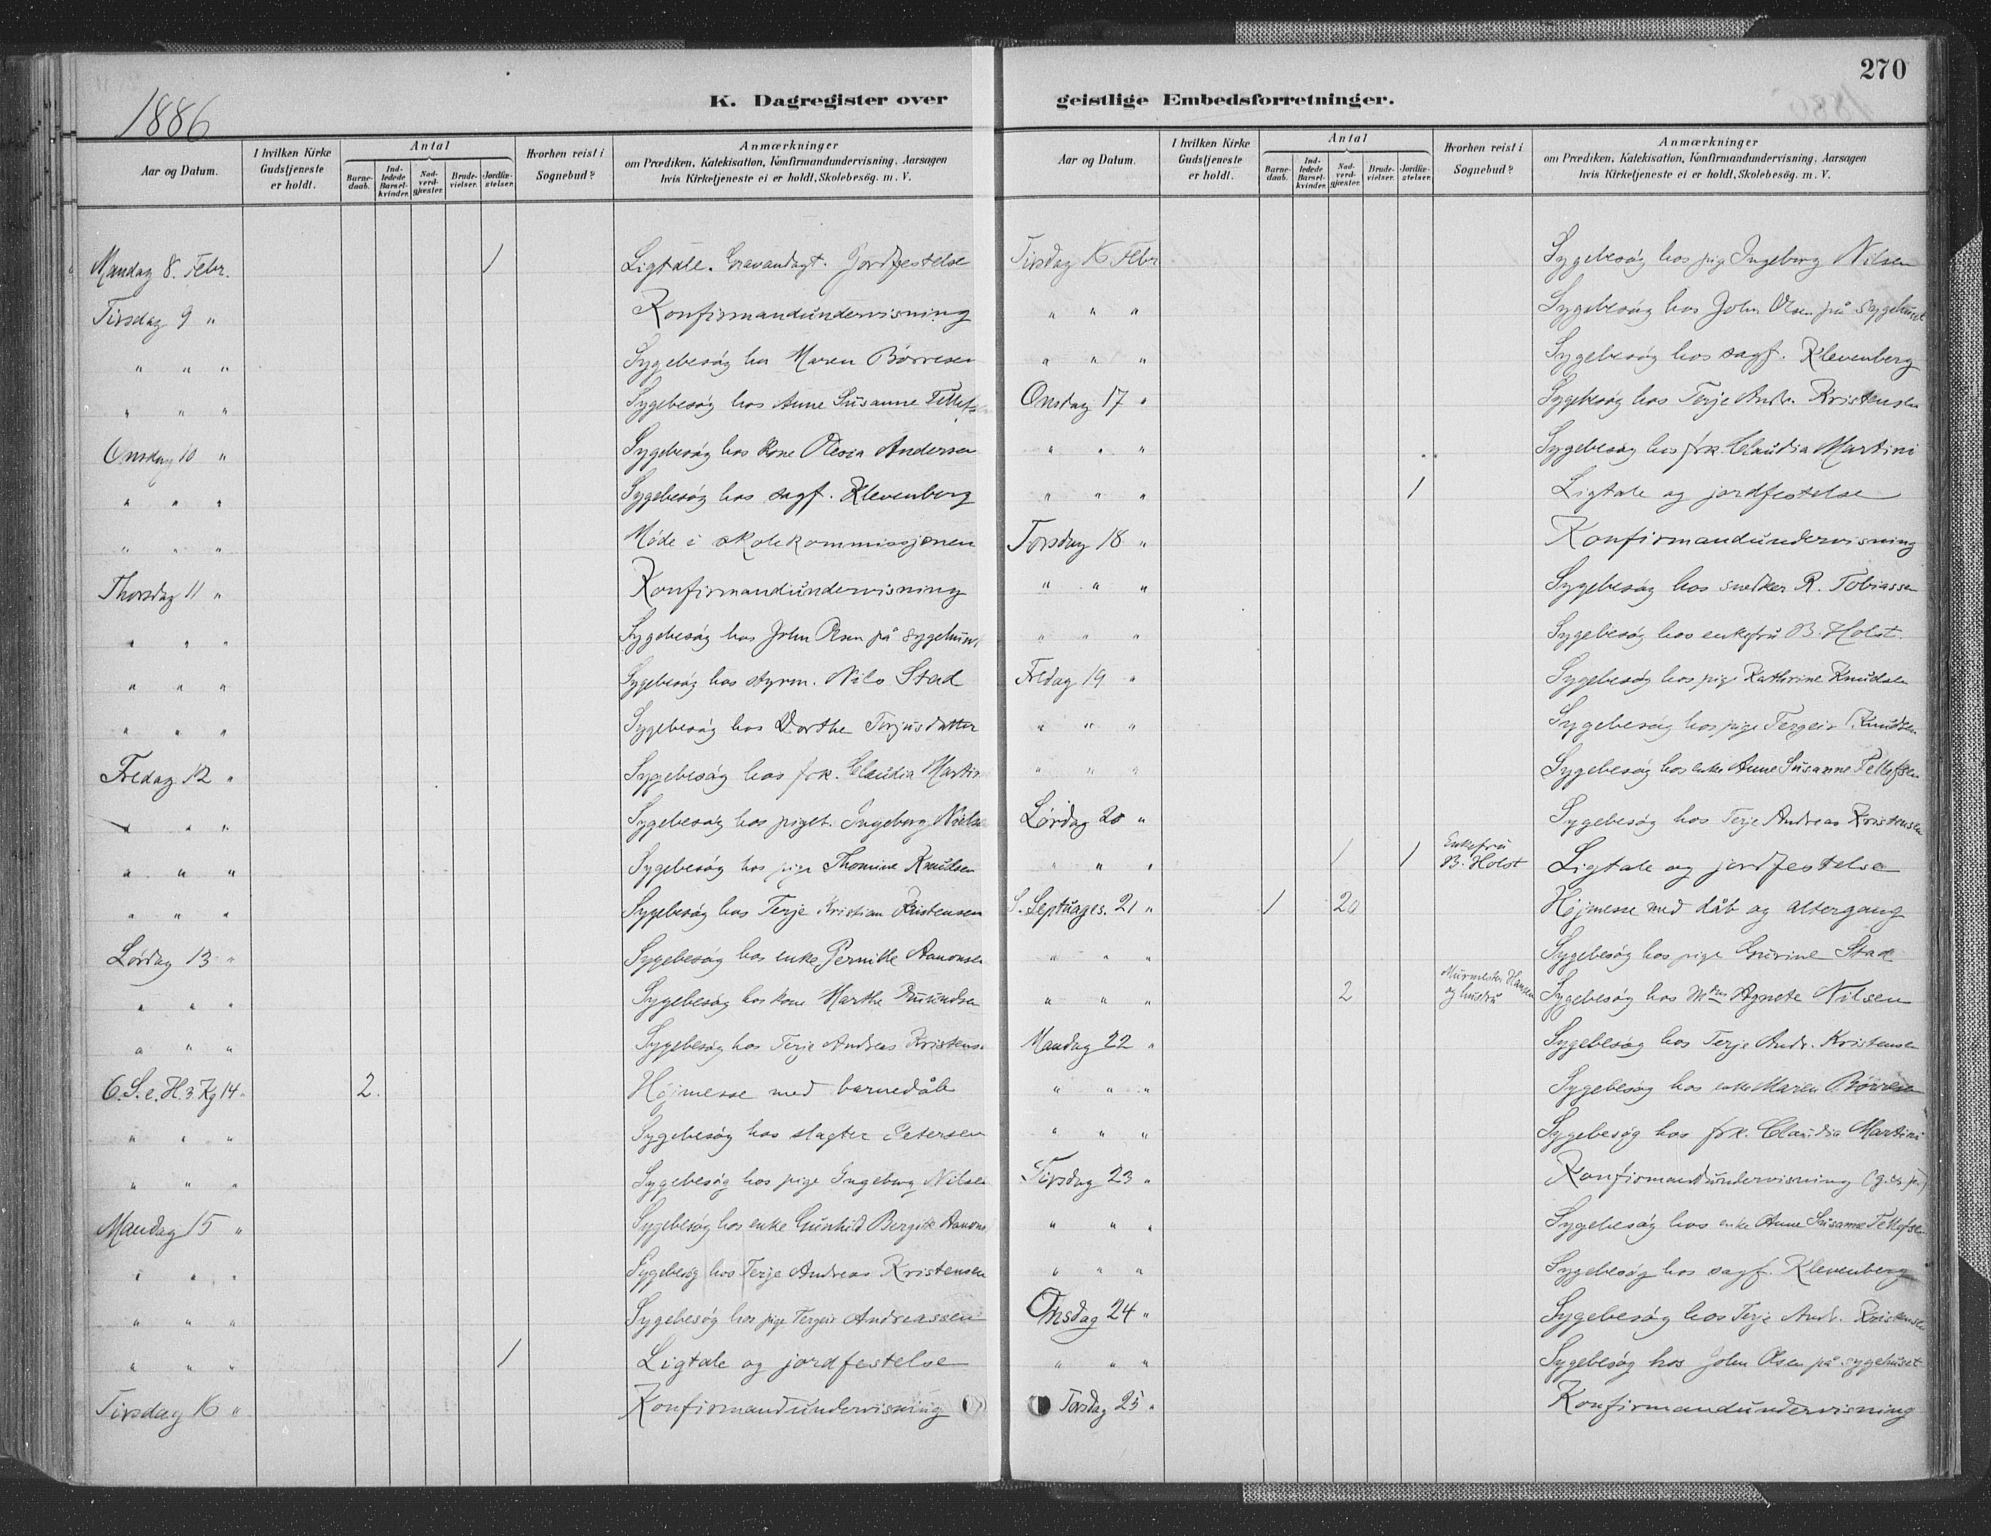 270
1886
K. Dagregister over geistlige Embedsforretninger.
Aar og Datum.
I hvilken Kirke Gudstjeneste er holdt.
Antal
Barnedaab.
Indledede Barselkvinder.
Nadverdgjæster.
Brudevielser.
Jordfæstelser.
Hvorhen reist i Sognebud?
Anmærkninger
om Prædiken, Katekisation, Konfirmandundervisning, Aarsagen
hvis Kirketjeneste ei er holdt, Skolebesøg. m. V.
Mandag 8. Febr. 1 Ligtale. Gravandagt. Jordfestelse
Tirsdag 9 " Konfirmandundervisning
" " " Sygebesøg hos Maren Börresen
" " " Sygebesøg hos Anne Susanne Tellefs
Onsdag 10 " Sygebesøg hos kone Olevia Andersen
" " " Sygebesøg hos sagf. Klevenberg
" " " Møde i skolekommissjonen
Thorsdag 11 " Konfirmandundervisning
" " " Sygebesøg hos John Olsen på sygehuset
" " " Sygebesøg hos styrm. Nils Stad
" " " Sygebesøg hos Dorthe Terjusdatter
Fredag 12 " Sygebesøg hos frk. Claudia Martin
" " " Sygebesøg hos piget. Ingeborg Niels
" " " Sygebesøg hos pige Thomine Knudsen
" " " Sygebesøg hos Terje Kristian Kristensen
Lördag 13 " Sygebesøg hos enke Pernille Aanonsen
" " " Sygebesøg hos kone Marthe
" " " Sygebesøg hos Terje Andreas Kristens
6. S. e. H. 3. Kg 14 " 2. Højmesse med barnedåb
" " " Sygebesøg hos slagter Petersen
" " " Sygebesøg hos pige Ingeborg Nilsen
Mandag 15 " Sygebesøg hos enke Gunhild Bergitte Aanons
" " " Sygebesøg hos Terje Andreas Kristensen
" " " Sygebesøg hos pige Tergeir Andreassen
" " " 1 Ligtale og jordfestelse
Tirsdag 16 " Konfirmandundervisning
Aar og Datum.
I hvilken Kirke Gudstjeneste er holdt.
Antal
Barnedaab.
Indledede Barselkvinder.
Nadverdgjæster.
Brudevielser.
Jordfæstelser.
Hvorhen reist i Sognebud?
Anmærkninger
om Prædiken, Katekisation, Konfirmandundervisning, Aarsagen
hvis Kirketjeneste ei er holdt, Skolebesøg. m. V.
Tirsdag 16 Febr Sygebesøg hos pige Ingeborg Nilsen
" " " Sygebesøg hos John Olsen på sygehuset
" " " Sygebesøg hos sagf. Klevenberg
Onsdag 17 " Sygebesøg hos Terje Andr. Kristensen
" " " Sygebesøg hos frk. Claudia Martini
" " " 1 Ligtale og jordfestelse
Torsdag 18 " Konfirmandundervisning
" " " Sygebesøg hos snedker R. Tobiassen
" " " Sygebesøg hos enkefru B. Holst.
Fredag 19 " Sygebesøg hos pige Kathrine Knudsen
" " " Sygebesøg hos pige Tergeir Knudsen
" " " Sygebesøg hos enke Anne Susanne Tellefsen
Lördag 20 " Sygebesøg hos Terje Andreas Kristensen
" " " 1 1 Enkefru B. Holst Ligtale og jordfestelse
S. Septuages. 21 " 1 20 Højmesse med dåb og altergang
" " " Sygebesøg hos pige Gurine Stad
" " " 2 Murmester Hansen og hustru Sygebesøg hos Agnete Nilsen
Mandag 22 " Sygebesøg hos Terje Andr. Kristensen
" " " Sygebesøg hos enke Maren Börresen
" " " Sygebesøg hos frk. Claudia Martini
Tirsdag 23 " Konfirmandundervisning
" " " Sygebesøg hos enke Anne Susanne Tellefsen
" " " Sygebesøg hos sagf. Klevenberg
Onsdag 24 " Sygebesøg hos Terje Andr. Kristensen
" " " Sygebesøg hos John Olsen på sygehuset
Torsdag 25 " Konfirmandundervisning